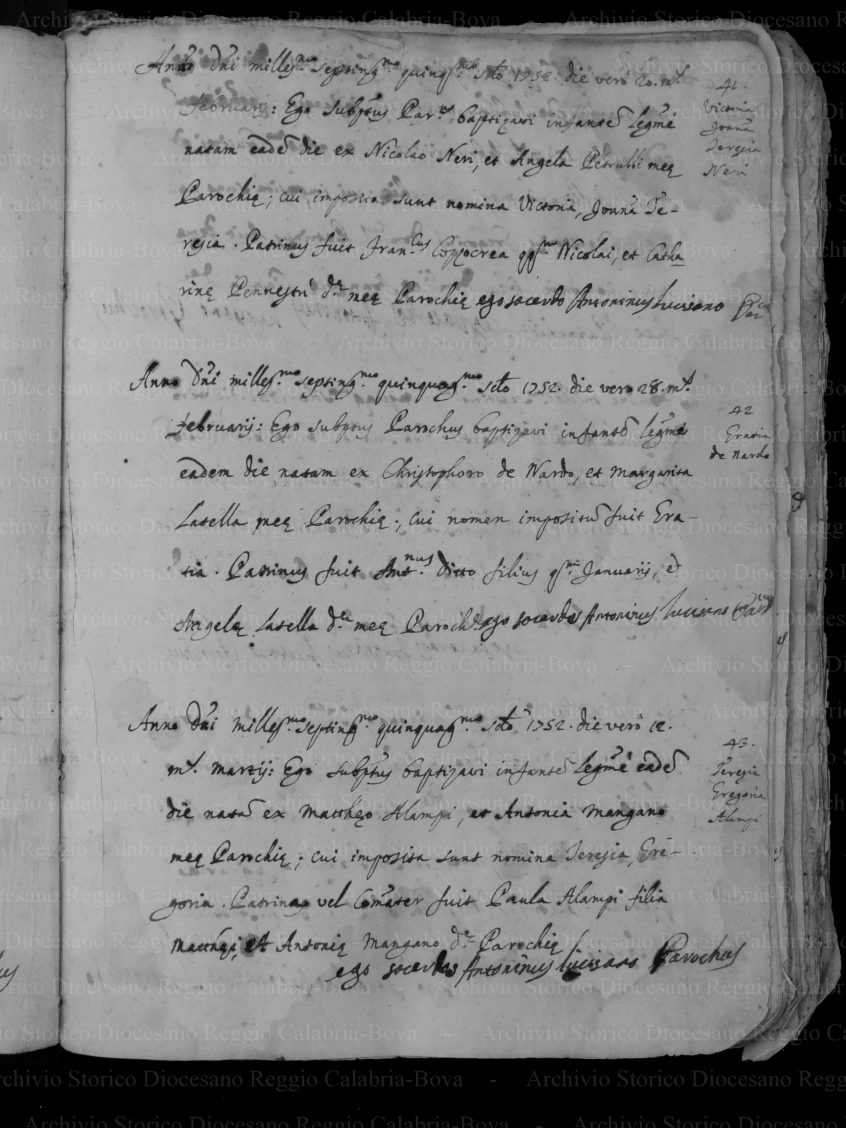 Anno Dni milles.mo septing.mo quinq.mo sdo 1752. die vero 20. m.s
Februarij: Ego subptus Par.us baptizavi infantē legme
natam eadē die ex Nicolao Neri, et Angela Petrulli meę
Parochię; cui imposita sunt nomina Victoria, Joana Te-
resia. Patrinus fuit Fran.cus Cozzocrea qm Nicolai, et Catha
rinę Pennestrì d.ę meę Parochię ego sacerdos Antoninus Luciano
41.
Victoria
Joana
Teresia
Neri
Anno Dni milles.mo septing.mo quinquag.mo sdo 1752. die vero 28. m.s
Februarij: Ego subptus Parochus baptizavi infantē legme
eadem die natam ex Christophoro de Nardo, et Margarita
Latella meę Parochię; cui nomen impositū fuit Gra-
tia. Patrinus fuit Ant.nus Ditto filius qm Januarij, et
Angelę Latella d.ę meę Paroch. ego sacerdos Antoninus Luciano Par.us
42
Gratia
de Nardo
Anno Dni milles.mo septing.mo quinquag.mo sdo 1752. die vero 12.
m.s Martij: Ego subptus baptizavi infantē legme eadē
die natā ex Matthęo Alampi, et Antonia Mangano
meę Parochię; cui imposita sunt nomina Teresia, Gre-
goria. Patrina vel Comater fuit Paula Alampi filia
Matthęi, et Antonię Mangano d.ę Parochię
ego sacerdos Antoninus Luciano Parochus
43.
Teresia
Gregoria
Alampi
Archivio Storico Diocesano Reggio Calabria-Bova